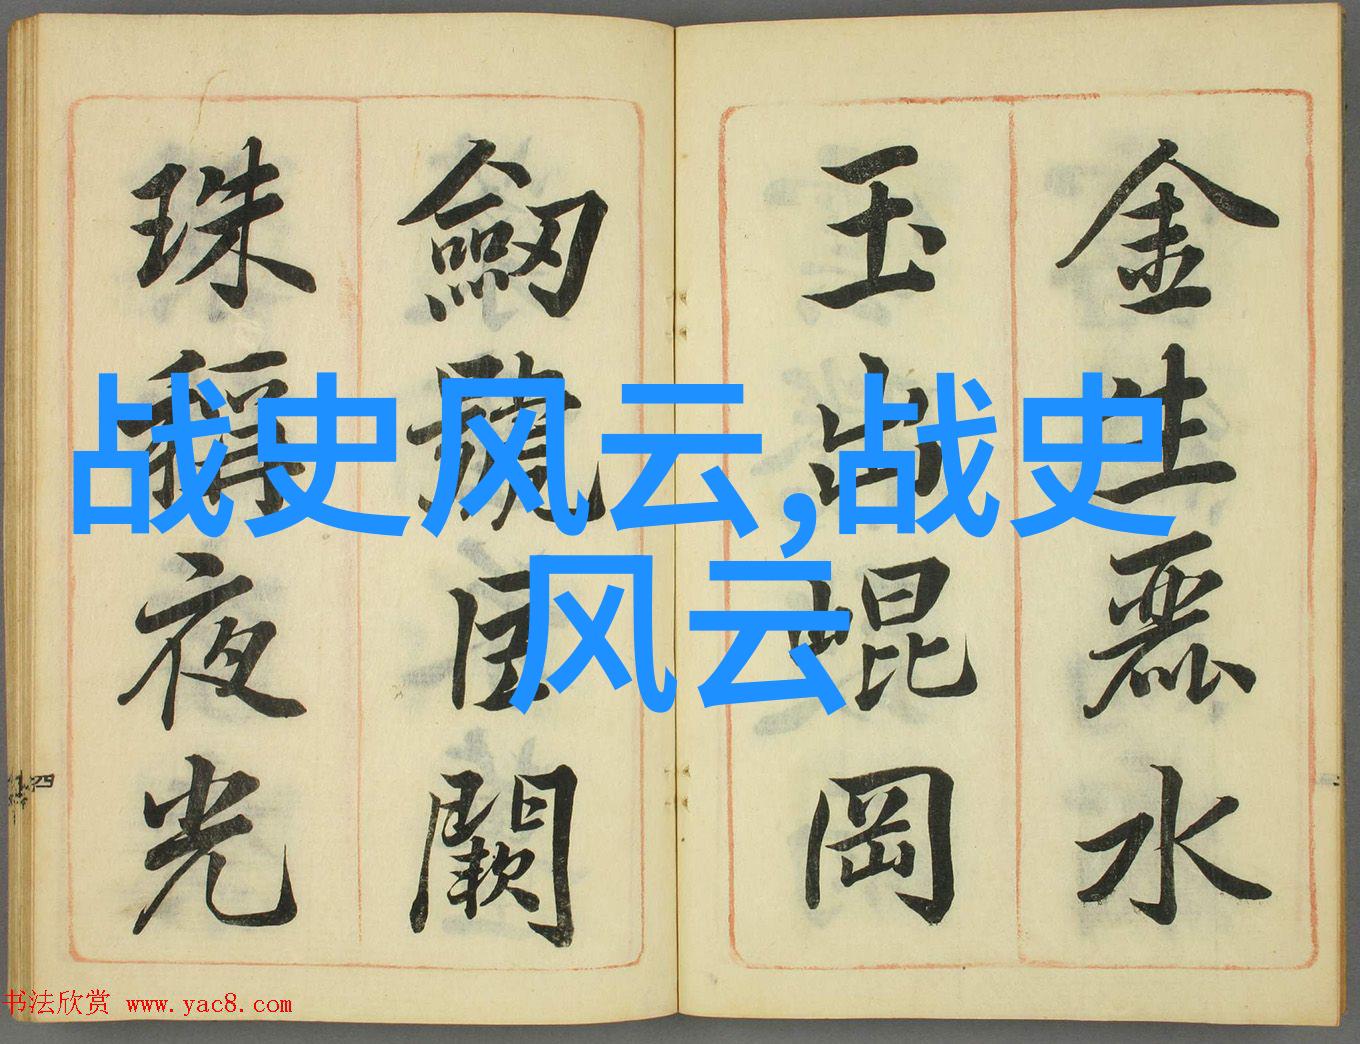 金生麗水
玉出崐岡
劒號巨闕
珠稱夜光
战史风云,战史
风云
四
书法欣赏 www.yac8.com